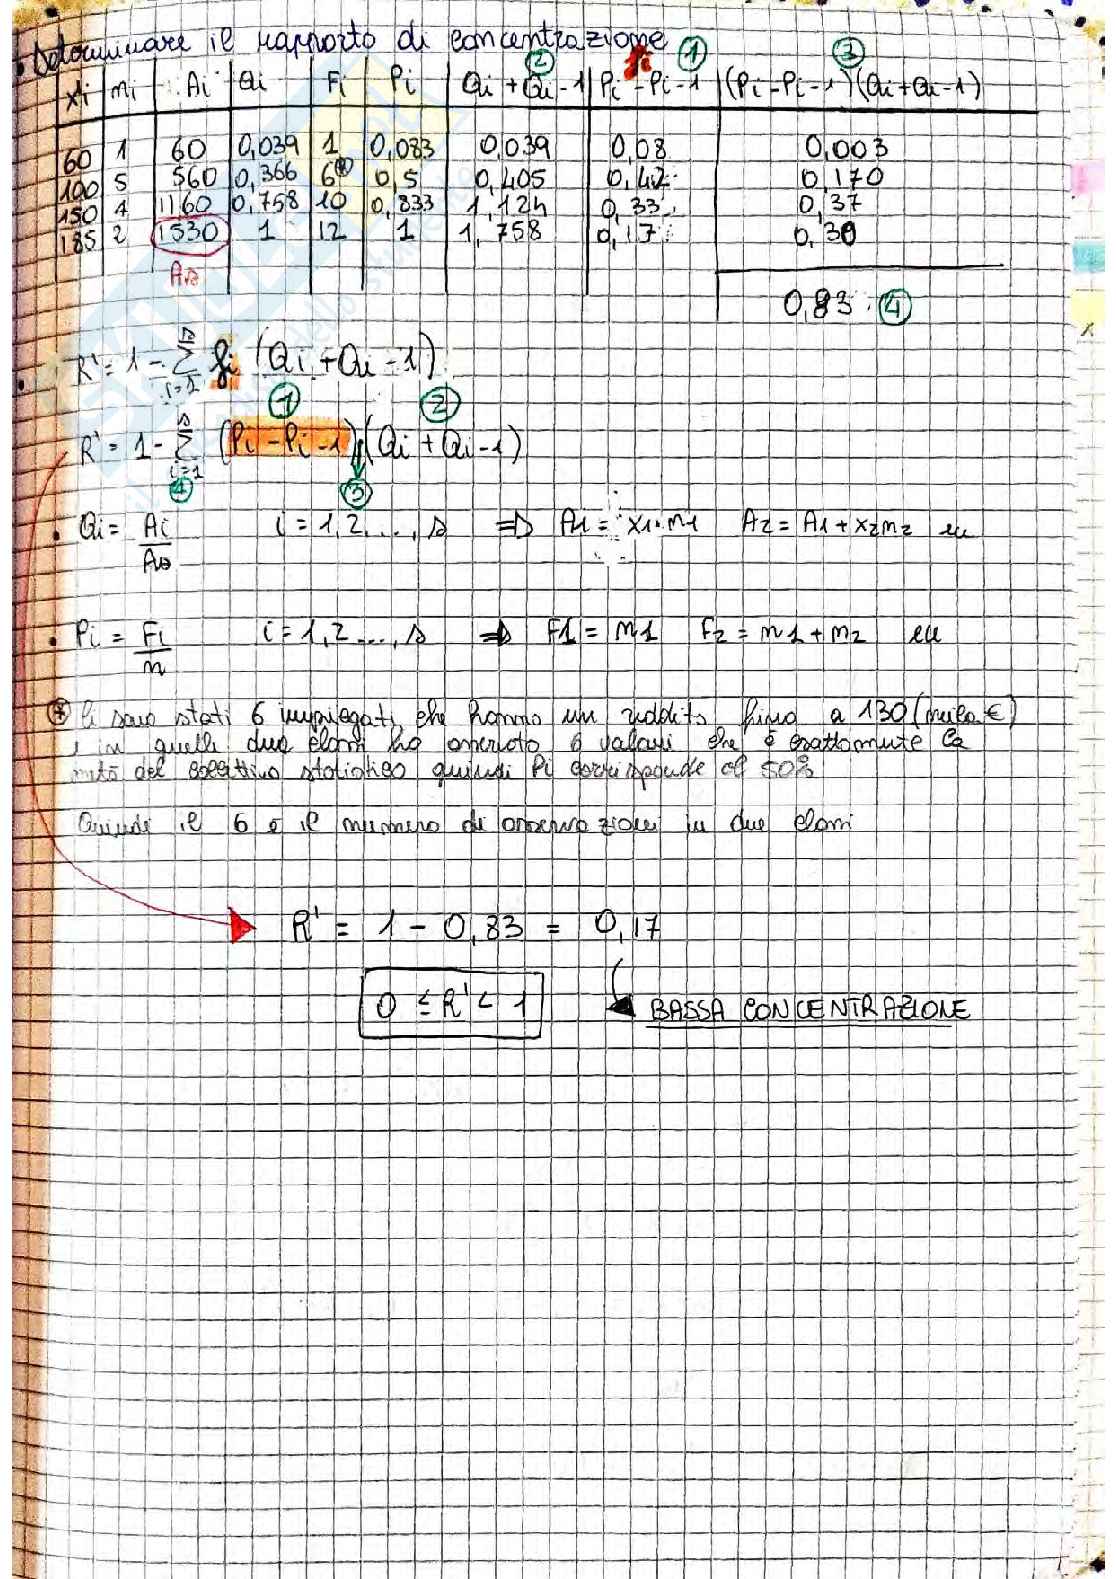 • Determinare il rapporto di concentrazione
② fi ① ③
xi ni Ai Qi Fi Pi Qi + Qi-1 Pi - Pi-1 (Pi - Pi-1)(Qi+Qi-1)
60 1 60 0,039 1 0,083 0,039 0,08 0,003
100 5 560 0,366 6 0,5 0,405 0,42 0,170
150 4 1160 0,758 10 0,833 1,124 0,33 0,37
185 2 1530 1 12 1 1,758 0,17 0,30
As
0,83 ④
• R' = 1 - Σ i=1 s fi (Qi + Qi-1)
① ②
R' = 1 - Σ i=1 s (Pi - Pi-1)(Qi + Qi-1)
④ ③
• Qi = Ai/As i = 1,2..., s ⇒ A1 = x1·n1 A2 = A1 + x2n2
• Pi = Fi/n i = 1,2..., s ⇒ F1 = n1 F2 = n1 + n2
* Ci sono stati 6 impiegati che hanno un reddito fino a 130 (mila €)
e in quelle due classi ho 6 valori che è esattamente la
metà del collettivo statistico quindi Pi corrisponde al 50%
Quindi il 6 è il numero di osservazioni in due classi
R' = 1 - 0,83 = 0,17
0 ≤ R' < 1 BASSA CONCENTRAZIONE